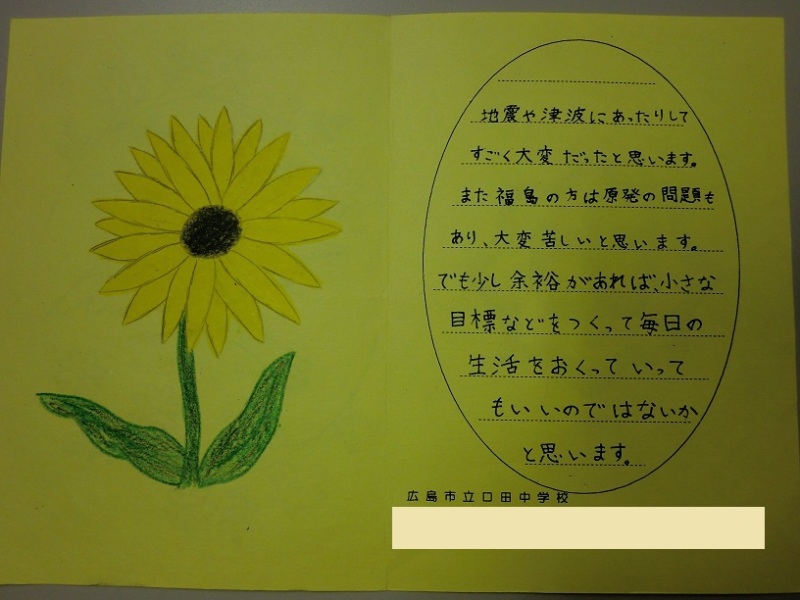 地震や津波にあったりして
すごく大変だったと思います。
また福島の方は原発の問題も
あり、大変苦しいと思います。
でも少し余裕があれば、小さな
目標などをつくって毎日の
生活をおくっていって
もいいのではないか
と思います。
広島市立口田中学校